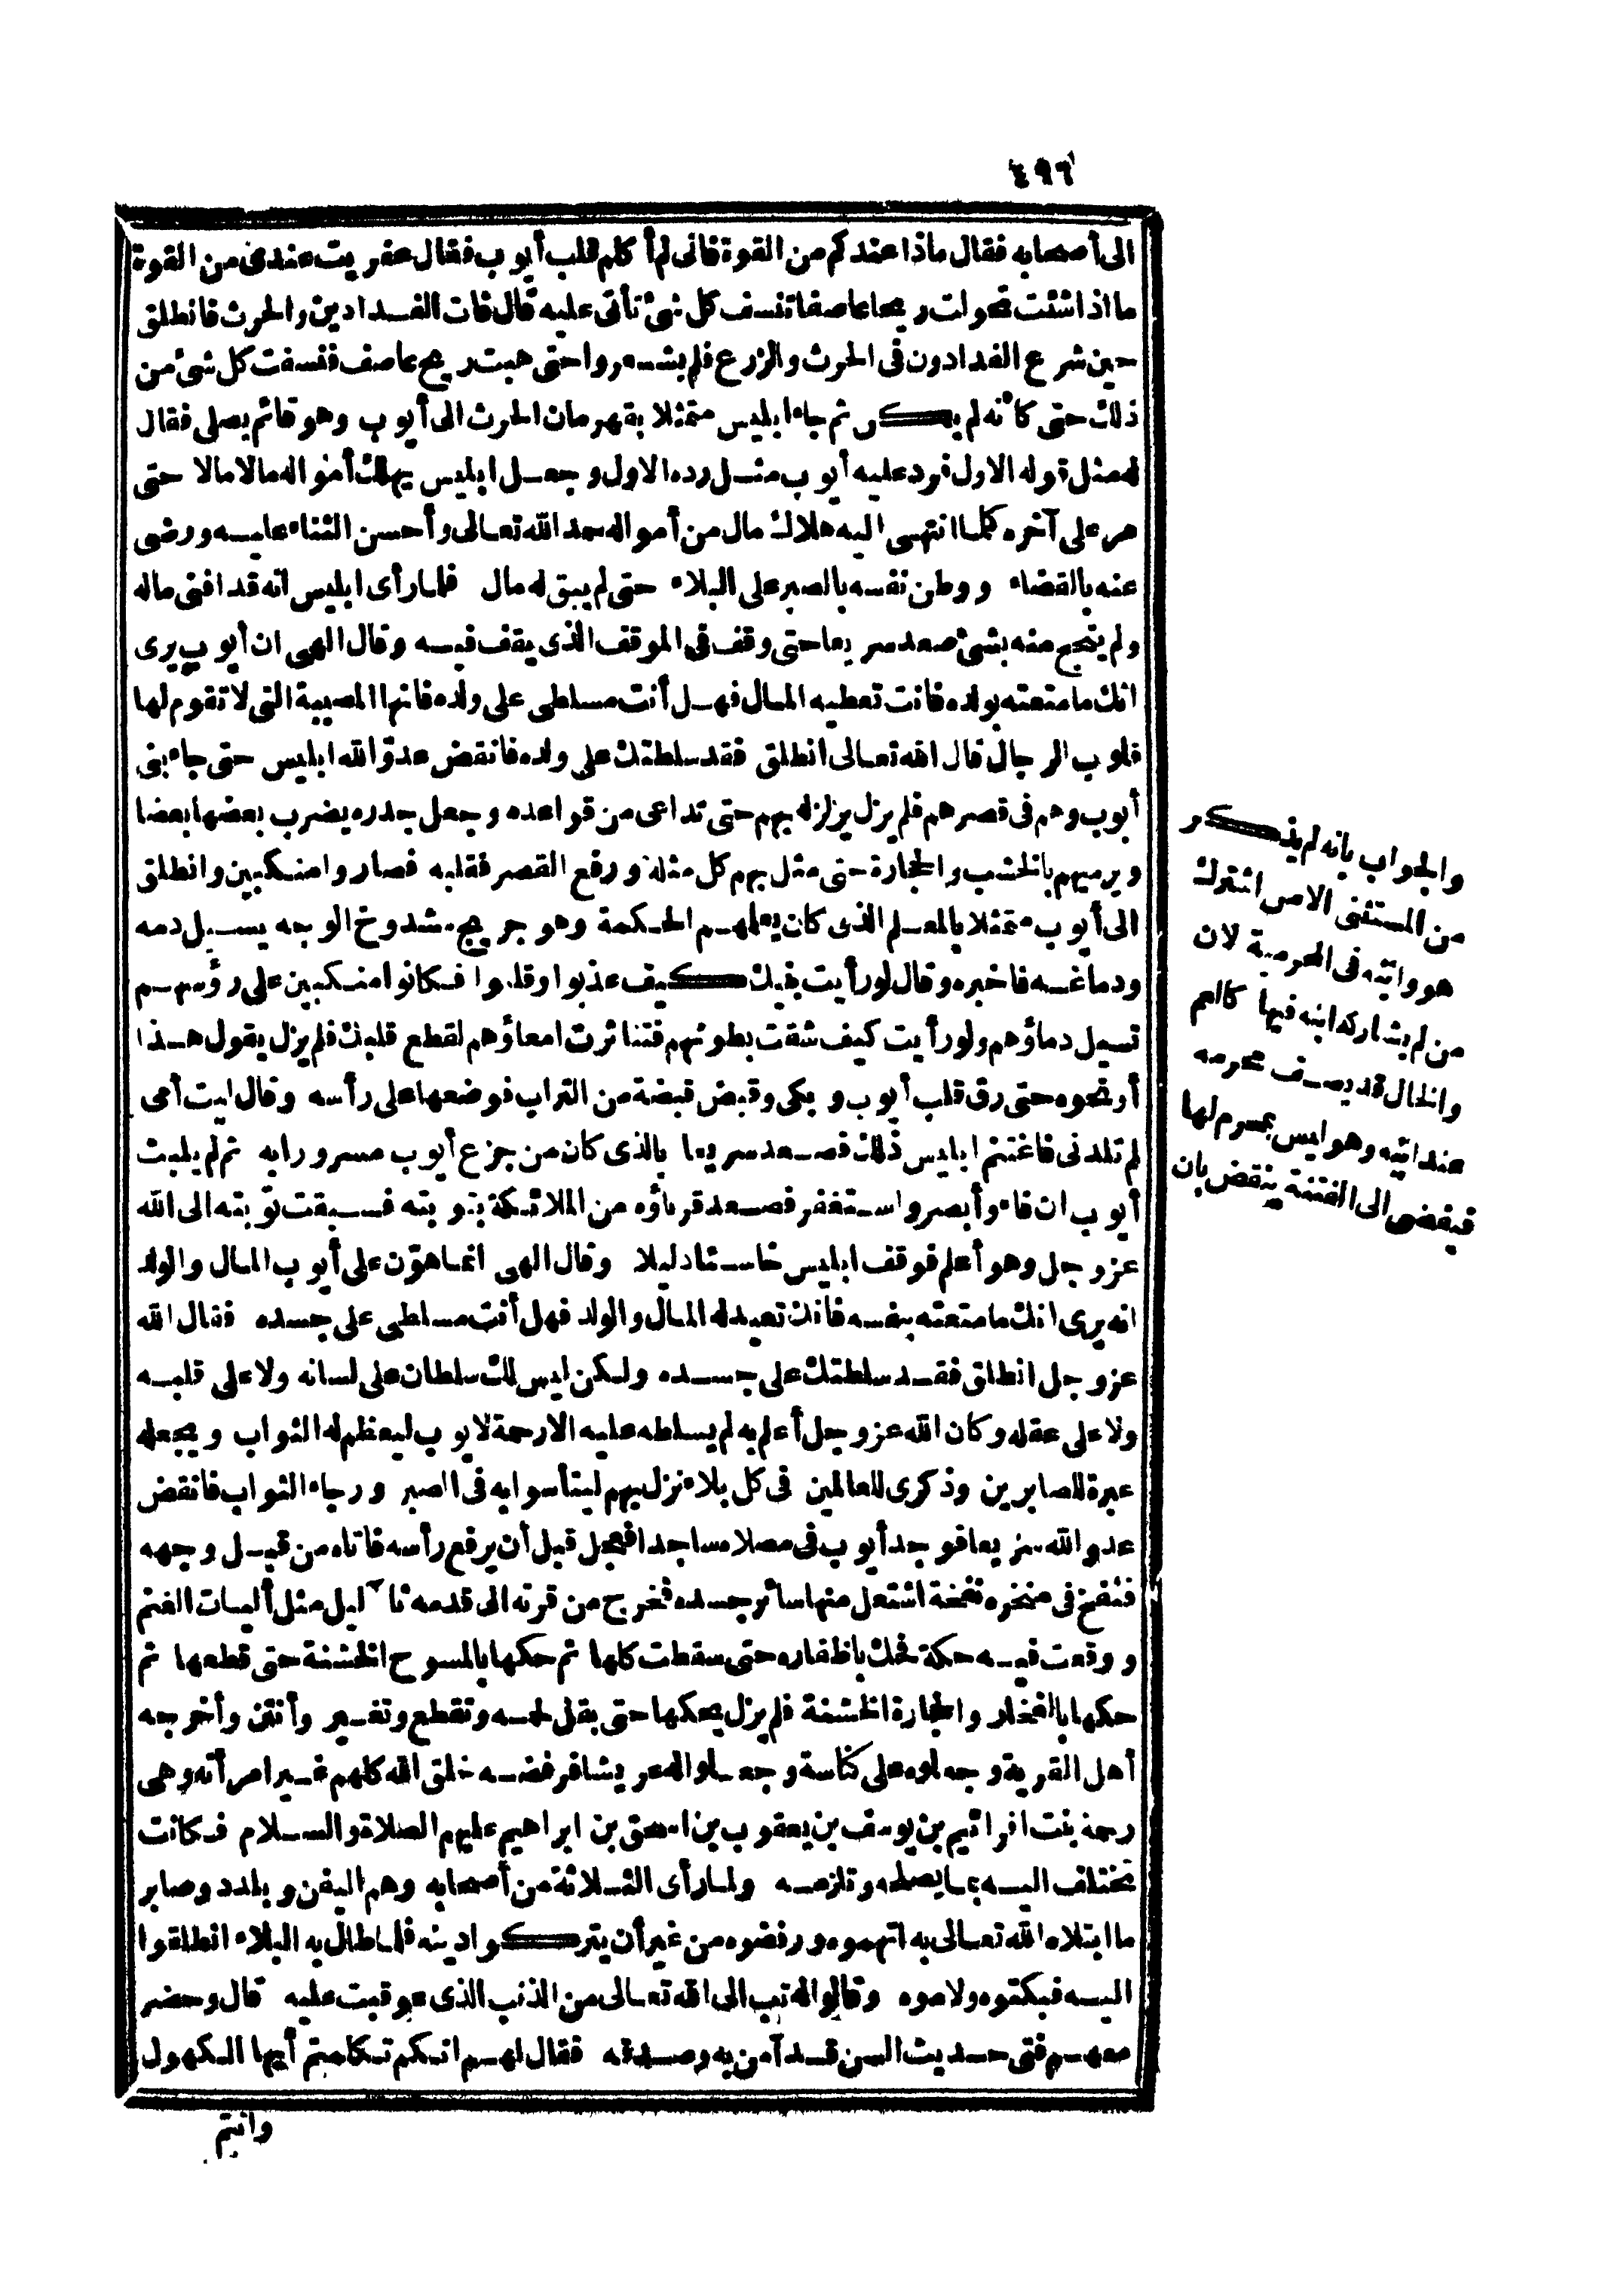 ٤٩٦
الى أصحابه فقال ماذا عندكم من القوة فانى لم أكلم قلب أيوب فقال عفريت عندى من القوة
ما اذا شئت تحولت ريحا عاصفا تنسف كل شئ تأتى عليه قال فات الفدادين والحرث فانطلق
حين شرع الفدادون فى الحرث والزرع فلم يشعروا حتى هبت ريح عاصف فنسفت كل شئ من
ذلك حتى كأنه لم يكن ثم جاء ابليس متمثلا بقهرمان الحرث الى أيوب وهو قائم يصلى فقال
له مثل قوله الاول فرد عليه أيوب مثل رده الاول وجعل ابليس يهلك أمواله مالا مالا حتى
مر على آخره كلما انتهى اليه هلاك مال من أمواله حمد الله تعالى وأحسن الثناء عليه ورضى
عنه بالقضاء ووطن نفسه بالصبر على البلاء حتى لم يبق له مال فلما رأى ابليس انه قد افنى ماله
ولم ينجح منه بشئ صعد سريعا حتى وقف فى الموقف الذى يقف فيه وقال الهى ان أيوب يرى
انك ما متعته بولده فانت تعطيه المال فهل أنت مسلطى على ولده فانها المصيبة التى لا تقوم لها
قلوب الرجال قال الله تعالى انطلق فقد سلطتك على ولده فانقض عدو الله ابليس حتى جاء بنى
أيوب وهم فى قصرهم فلم يزل يزلزله بهم حتى تداعى من قواعده وجعل جدره يضرب بعضها بعضا
ويرميهم بالخشب والحجارة حتى مثل بهم كل مثلة ورفع القصر فقلبه فصاروا منكبين وانطلق
الى أيوب متمثلا بالمعلم الذى كان يعلمهم الحكمة وهو جريح مشدوخ الوجه يسيل دمه
ودماغه فاخبره وقال لو رأيت بنيك كيف عذبوا وقلبوا فكانوا منكبين على رؤسهم
تسيل دماؤهم ولو رأيت كيف شقت بطونهم فتناثرت امعاؤهم لقطع قلبك فلم يزل يقول هذا
أو نحوه حتى رق قلب أيوب وبكى وقبض قبضة من التراب فوضعها على رأسه وقال ليت أمى
لم تلدنى فاغتنم ابليس ذلك فصعد سريعا بالذى كان من جزع أيوب مسرورا به ثم لم يلبث
أيوب ان فاء وأبصر واستغفر فصعد قرناؤه من الملائكة بتوبته فسبقت توبته الى الله
عز وجل وهو أعلم فوقف ابليس خاسئا ذليلا وقال الهى انما هوّن على أيوب المال والولد
انه يرى انك ما متعته بنفسه فانك تعيد له المال والولد فهل أنت مسلطى على جسده فقال الله
عز وجل انطلق فقد سلطتك على جسده ولكن ليس لك سلطان على لسانه ولا على قلبه
ولا على عقله وكان الله عز وجل أعلم به لم يسلطه عليه الا رحمة لايوب ليعظم له الثواب ويجعله
عبرة للصابرين وذكرى للعالمين فى كل بلاء نزل بهم ليتأسوا به فى الصبر ورجاء الثواب فانقض
عدو الله سريعا فوجد أيوب فى مصلاه ساجدا فعجل قبل أن يرفع رأسه فاتاه من قبل وجهه
فنفخ فى منخره نفخة اشتعل منها سائر جسده فخرج من قرنه الى قدمه ثا ٓ ليل مثل أليات الغنم
ووقعت فيه حكة فحك باظفاره حتى سقطت كلها ثم حكها بالمسوح الخشنة حتى قطعها ثم
حكها بالفخار والحجارة الخشنة فلم يزل يحكها حتى بقل لحمه وتقطع وتغير وأنتن وأخرجه
أهل القرية وجعلوه على كناسة وجعلوا له عريشا فرفضه خلق الله كلهم غير امرأته وهى
رحمة بنت افرائيم بن يوسف بن يعقوب بن اسحق بن ابراهيم عليهم الصلاة والسلام فكانت
تختلف اليه بما يصلحه وتلزمه ولما رأى الثلاثة من أصحابه وهم اليفن وبلدد وصابر
ما ابتلاه الله تعالى به اتهموه ورفضوه من غير أن يتركوا دينه فلما طال به البلاء انطلقوا
اليه فبكتوه ولاموه وقالوا له تب الى الله تعالى من الذنب الذى عوقبت عليه قال وحضر
معهم فتى حديث السن قد آمن به وصدقه فقال لهم انكم تكلمتم أيها الكهول
وانتم
والجواب بانه لم يذكر
من المستثنى الا من اشترك
هو وابنه فى المحرمية لان
من لم يشاركه ابنه فيها كالعم
والخال قد يصف محرمه
عند ابنه وهو ليس بمحرم لها
فيفضى الى الفتنة ينقض بان